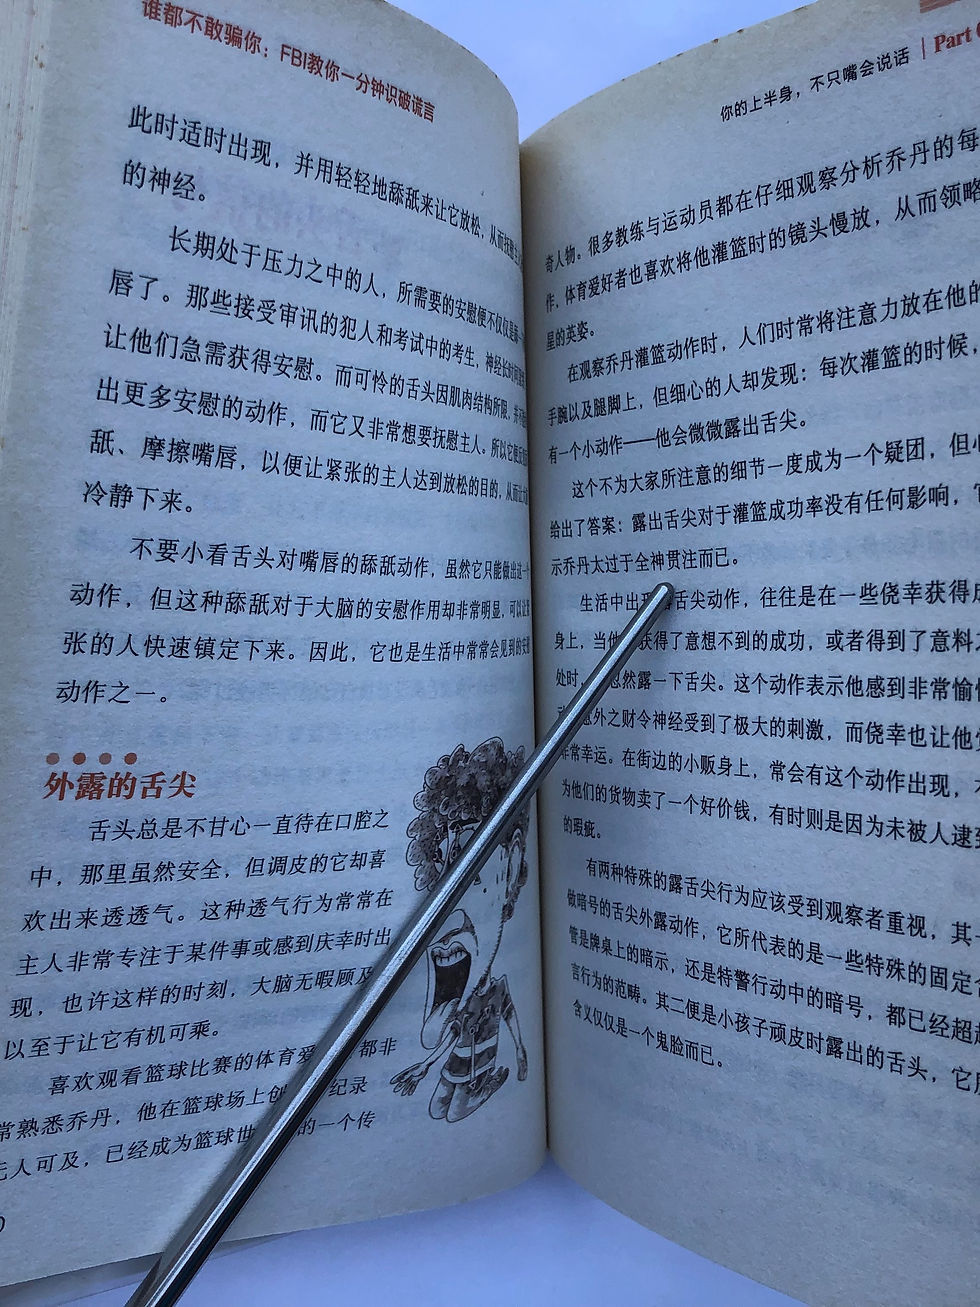 谁都不敢骗你：FBI教你一分钟识破谎言
此时适时出现，并用轻轻地舔舐来让它放松，从而抚慰
的神经。
长期处于压力之中的人，所需要的安慰便不仅仅是舔一
唇了。那些接受审讯的犯人和考试中的考生，神经长时间
让他们急需获得安慰。而可怜的舌头因肌肉结构所限，并不能
出更多安慰的动作，而它又非常想要抚慰主人。所以它便
舐、摩擦嘴唇，以便让紧张的主人达到放松的目的，从而让
冷静下来。
不要小看舌头对嘴唇的舔舐动作，虽然它只能做出这一个
动作，但这种舔舐对于大脑的安慰作用却非常明显，可以让
张的人快速镇定下来。因此，它也是生活中常常会见到的安慰
动作之一。
外露的舌尖
舌头总是不甘心一直待在口腔之
中，那里虽然安全，但调皮的它却喜
欢出来透透气。这种透气行为常常在
主人非常专注于某件事或感到庆幸时出
现，也许这样的时刻，大脑无暇顾及
以至于让它有机可乘。
喜欢观看篮球比赛的体育爱 都非
常熟悉乔丹，他在篮球场上创 纪录
无人可及，已经成为篮球世 的一个传
你的上半身，不只嘴会说话 | Part
奇人物。很多教练与运动员都在仔细观察分析乔丹的每
作，体育爱好者也喜欢将他灌篮时的镜头慢放，从而领略
星的英姿。
在观察乔丹灌篮动作时，人们时常将注意力放在他的
手腕以及腿脚上，但细心的人却发现：每次灌篮的时候，
有一个小动作——他会微微露出舌尖。
这个不为大家所注意的细节一度成为一个疑团，但心
给出了答案：露出舌尖对于灌篮成功率没有任何影响，它
示乔丹太过于全神贯注而已。
生活中出现 舌尖动作，往往是在一些侥幸获得成
身上，当他 获得了意想不到的成功，或者得到了意料
处时， 忽然露一下舌尖。这个动作表示他感到非常愉
意外之财令神经受到了极大的刺激，而侥幸也让他
非常幸运。在街边的小贩身上，常会有这个动作出现，
为他们的货物卖了一个好价钱，有时则是因为未被人逮
的瑕疵。
有两种特殊的露舌尖行为应该受到观察者重视，其一
做暗号的舌尖外露动作，它所代表的是一些特殊的固定
管是牌桌上的暗示，还是特警行动中的暗号，都已经超
言行为的范畴。其二便是小孩子顽皮时露出的舌头，它
含义仅仅是一个鬼脸而已。